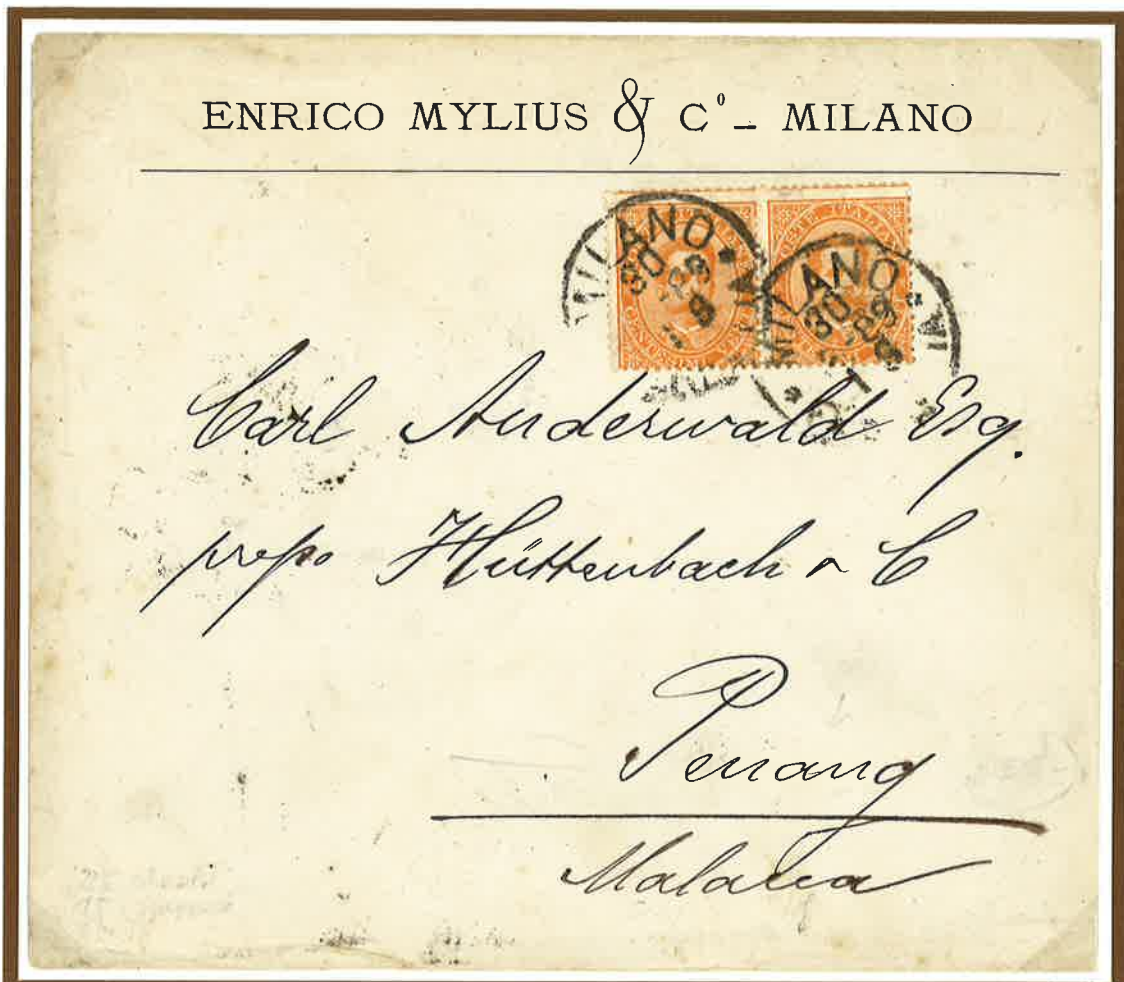 ENRICO MYLIUS & Cº - MILANO
MILANO
30
89
MILANO
30
89
Carl Anderwald Esq.
prepo Hüttenbach & C
Penang
Malacca